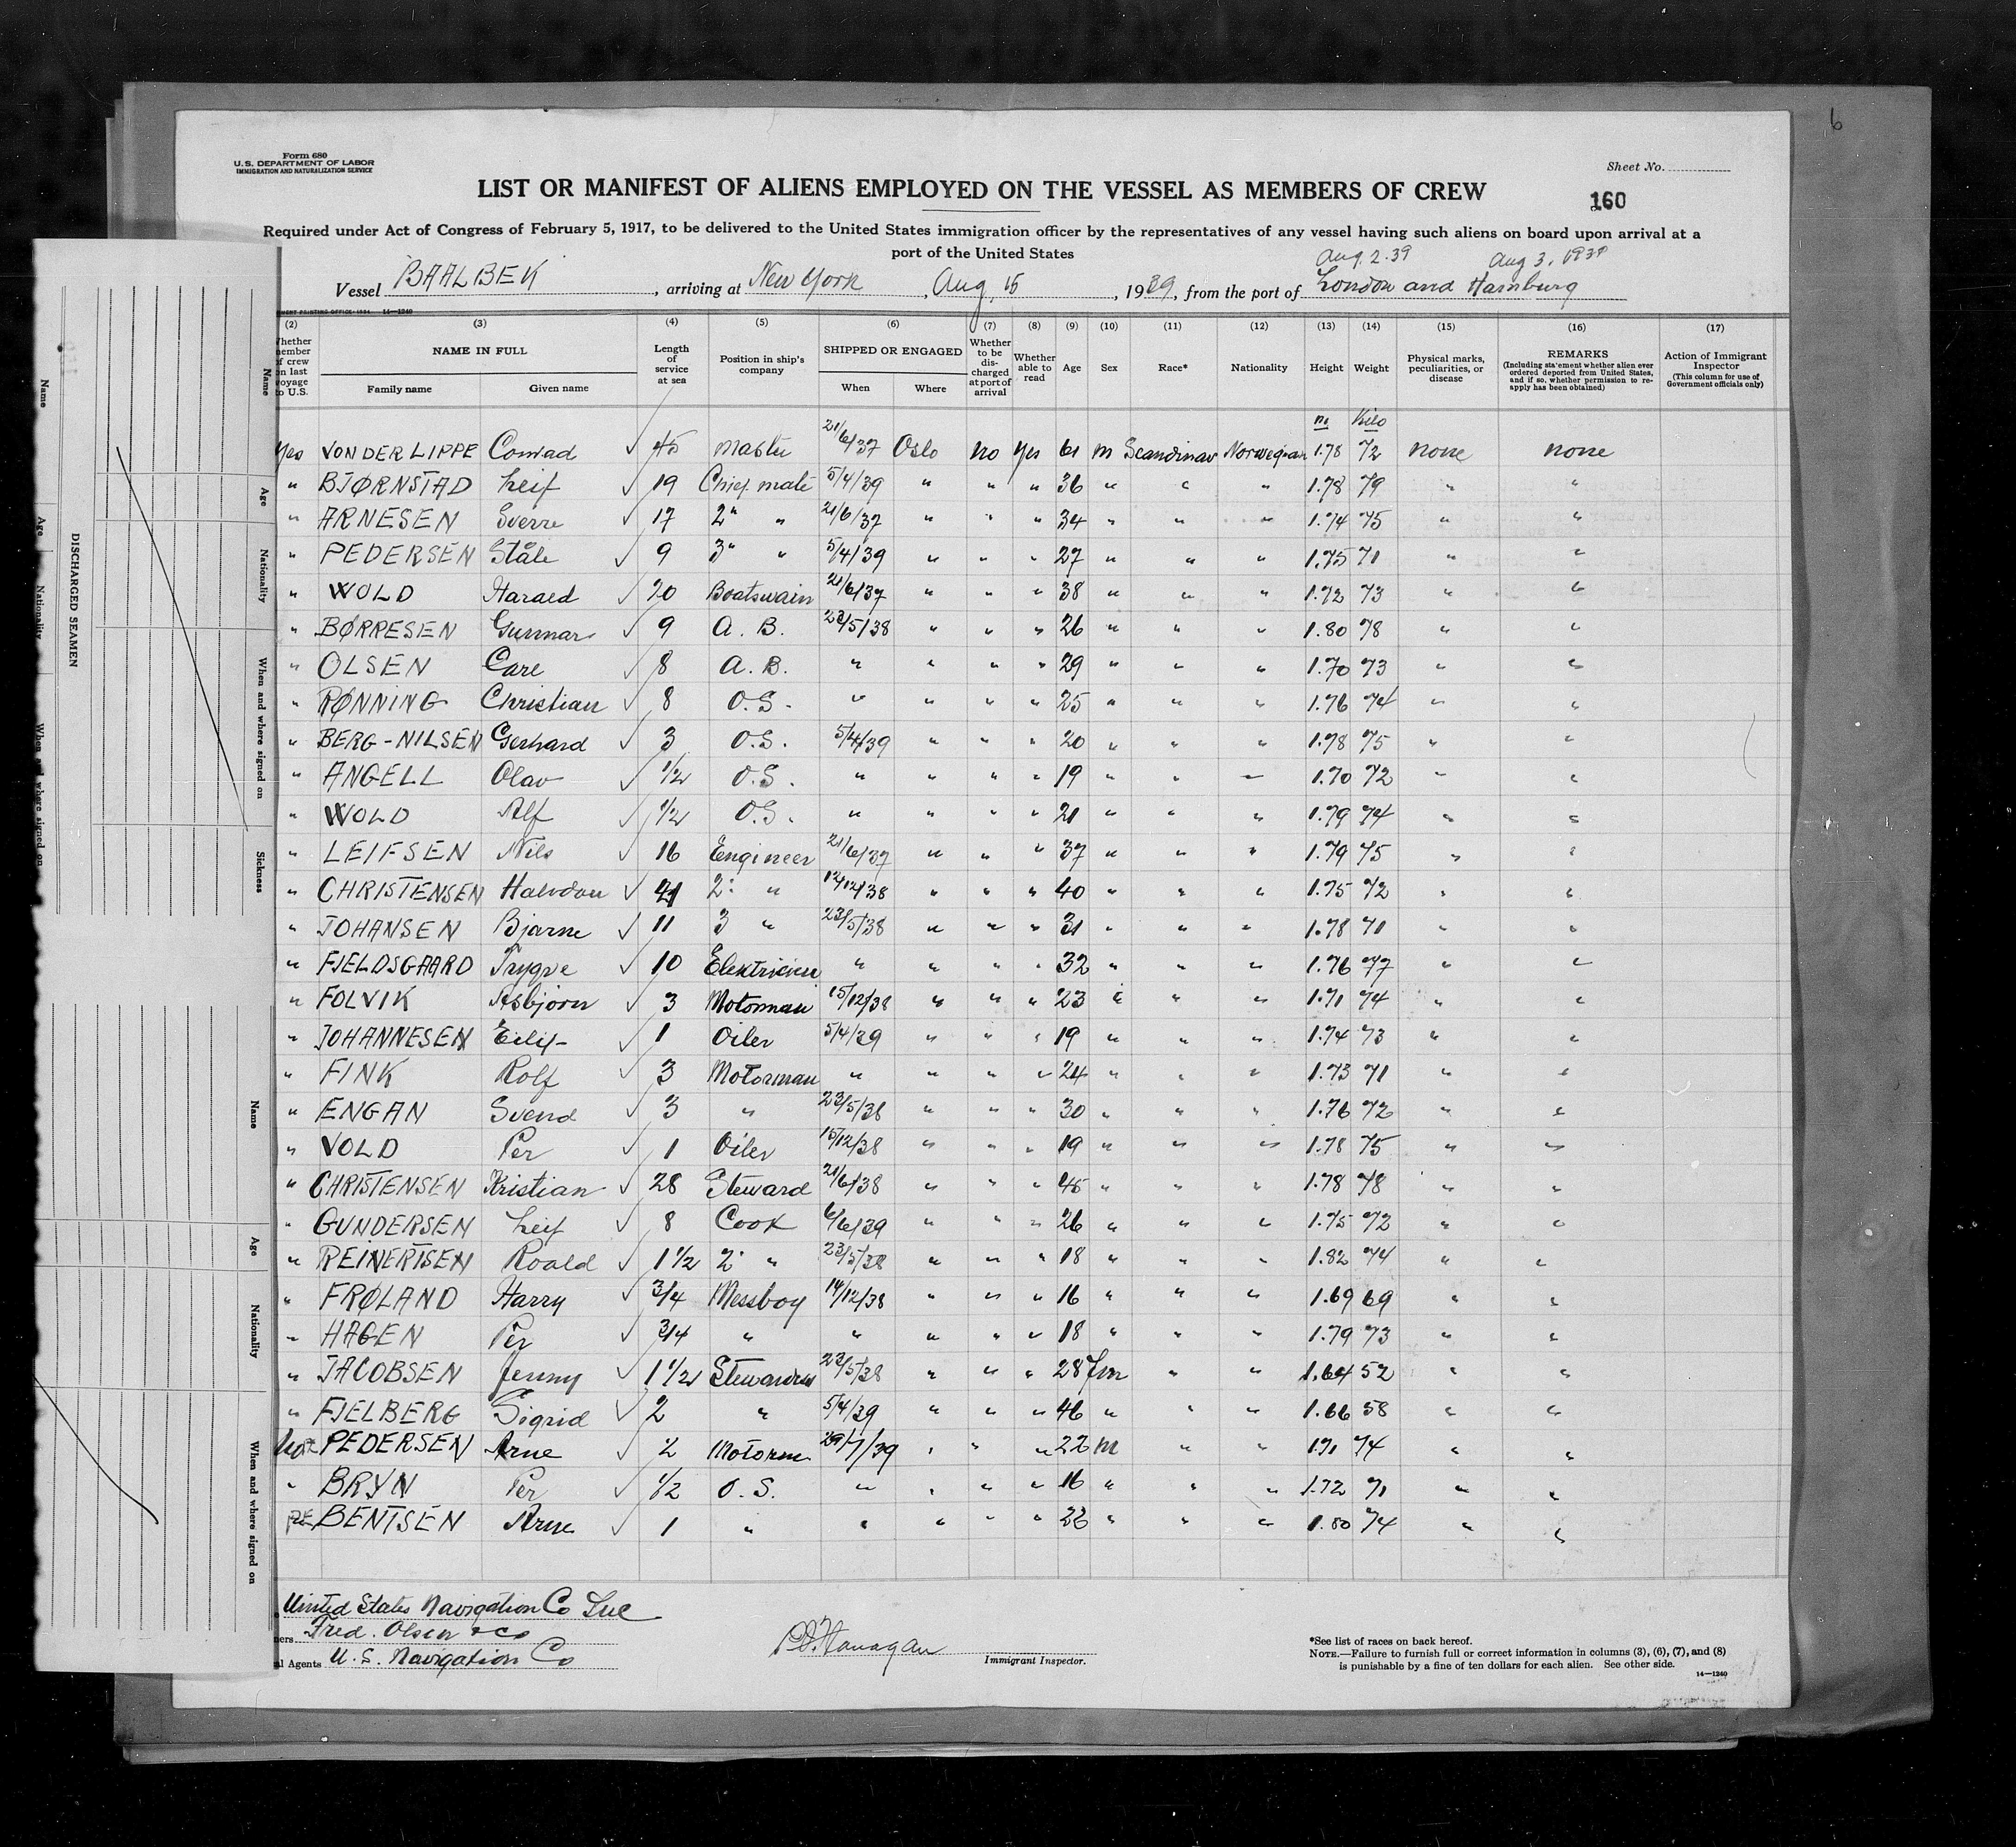 6
Form 680
U.S. DEPARTMENT OF LABOR
IMMIGRATION AND NATURALIZATION SERVICE
Sheet No.
LIST OR MANIFEST OF ALIENS EMPLOYED ON THE VESSEL AS MEMBERS OF CREW
160
Required under Act of Congress of February 5, 1917, to be delivered to the United States immigration officer by the representatives of any vessel having such aliens on board upon arrival at a
port of the United States
Aug. 2. 39 Aug 3. 1939
Vessel BAALBEK, arriving at New York, Aug, 15, 1939, from the port of London and Hamburg
(2) (3) (4) (5) (6) (7) (8) (9) (10) (11) (12) (13) (14) (15) (16) (17)
NAME IN FULL Family name Given name Length of service at sea Position in ship's company SHIPPED OR ENGAGED When Where Whether to be discharged at port of arrival Whether able to read Age Sex Race* Nationality Height Weight Physical marks, peculiarities, or disease REMARKS (Including statement whether alien ever ordered deported from United States, and if so, whether permission to reapply has been obtained) Action of Immigrant Inspector (This column for use of Government officials only)
m Kilo
Yes VON DER LIPPE Conrad ✓ 45 Master 21/6/37 Oslo no Yes 61 m Scandinav Norwegian 1.78 72 none none
" BJØRNSTAD Leif ✓ 19 Chief mate 5/4/39 " " " 36 " " " 1.78 79 " "
" ARNESEN Sverre ✓ 17 2" " 21/6/37 " " " 34 " " " 1.74 75 " "
" PEDERSEN Ståle ✓ 9 3" " 5/4/39 " " " 27 " " " 1.75 71 " "
" WOLD Harald ✓ 20 Boatswain 21/6/37 " " " 38 " " " 1.72 73 " "
" BØRRESEN Gunnar ✓ 9 A. B. 23/5/38 " " " 26 " " " 1.80 78 " "
" OLSEN Care ✓ 8 A. B. " " " " 29 " " " 1.70 73 " "
" RØNNING Christian ✓ 8 O.S. " " " " 25 " " " 1.76 74 " "
" BERG-NILSEN Gerhard ✓ 3 O.S. 5/4/39 " " " 20 " " " 1.78 75 " "
" ANGELL Olav ✓ 1/2 O.S. " " " " 19 " " " 1.70 72 " "
" WOLD Alf ✓ 1/2 O.S. " " " " 21 " " " 1.79 74 " "
" LEIFSEN Nils ✓ 16 Engineer 21/6/37 " " " 37 " " " 1.79 75 " "
" CHRISTENSEN Halvdan ✓ 21 2. " 12/12/38 " " " 40 " " " 1.75 72 " "
" JOHANSEN Bjarne ✓ 11 3 " 23/5/38 " " " 31 " " " 1.78 71 " "
" FJELDSGAARD Trygve ✓ 10 Elektricien " " " " 32 " " " 1.76 77 " "
" FOLVIK Asbjörn ✓ 3 Motorman 15/12/38 " " " 23 " " " 1.71 74 " "
" JOHANNESEN Eilif ✓ 1 Oiler 5/4/39 " " " 19 " " " 1.74 73 " "
" FINK Rolf ✓ 3 Motorman " " " " 24 " " " 1.73 71 " "
" ENGAN Svend ✓ 3 " 23/5/38 " " " 30 " " " 1.76 72 " "
" VOLD Per ✓ 1 Oiler 15/12/38 " " " 19 " " " 1.78 75 " "
" CHRISTENSEN Kristian ✓ 28 Steward 21/6/38 " " " 45 " " " 1.78 78 " "
" GUNDERSEN Leif ✓ 8 Cook 6/6/39 " " " 26 " " " 1.75 72 " "
" REINERTSEN Roald ✓ 1 1/2 2. " 23/5/38 " " " 18 " " " 1.82 74 " "
" FRØLAND Harry ✓ 3/4 Messboy 14/12/38 " " " 16 " " " 1.69 69 " "
" HAGEN Per ✓ 3/4 " " " " " 18 " " " 1.79 73 " "
" JACOBSEN Jenny ✓ 1 1/2 Stewardess 23/5/38 " " " 28 fm " " 1.64 52 " "
" FJELBERG Sigrid ✓ 2 " 5/4/39 " " " 46 " " " 1.66 58 " "
PEDERSEN Arne ✓ 2 Motorm 29/7/39 " " " 22 m " " 1.71 74 " "
" BRYN Per ✓ 1/2 O. S. " " " " 16 " " " 1.72 71 " "
BENTSEN Arne ✓ 1 " " " " " 22 " " " 1.80 74 " "
United States Navigation Co Inc
Fred. Olsen & Co
Agents U. S. Navigation Co
Immigrant Inspector.
*See list of races on back hereof.
NOTE.—Failure to furnish full or correct information in columns (3), (6), (7), and (8)
is punishable by a fine of ten dollars for each alien. See other side.
14—1240
DISCHARGED SEAMEN
Name
Age
Nationality
When and where signed on
Name
Age
Nationality
When and where signed on
Sickness
Name
Age
Nationality
When and where signed on